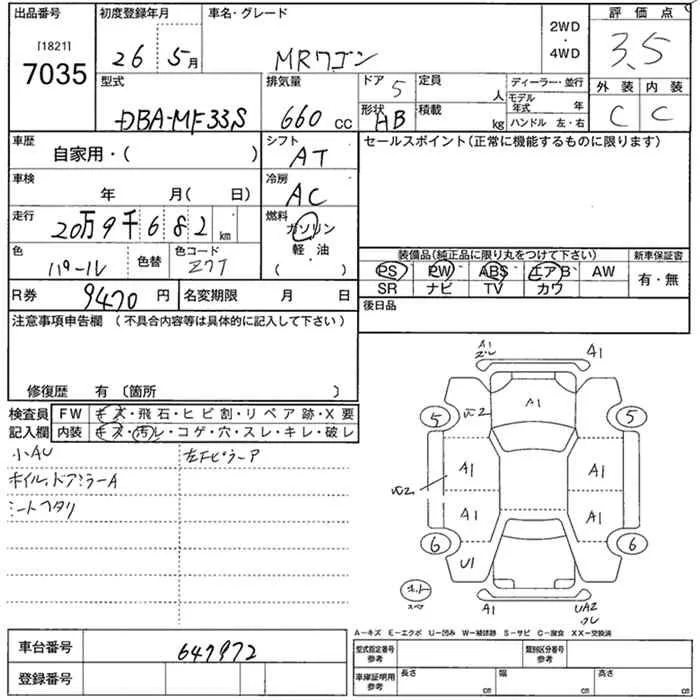 出品番号 初度登録年月 車名・グレード 2WD・4WD 評価点
[1821]
7035 26 5月 MRワゴン 3.5
型式 排気量 ドア 5 定員 人 ディーラー・並行 外装 内装
DBA-MF33S 660 CC 形状 HB 積載 kg モデル年式 年 C C
ハンドル 左・右
車歴 シフト セールスポイント(正常に機能するものに限ります)
自家用・( ) AT
車検 冷房
年 月( 日) AC
走行 燃料
20万9千682 km ガソリン
軽・油
( ・ )
色 色替 色コード 装備品(純正品に限り丸をつけて下さい) 新車保証書
パール Z7T PS PW ABS エアB AW 有・無
SR ナビ TV カワ
R券 9470 円 名変期限 月 日 後日品
注意事項申告欄 (不具合内容等は具体的に記入して下さい)
修復歴 有 〔箇所 〕
検査員 FW キズ・飛石・ヒビ割・リペア跡・X要
記入欄 内装 キズ・汚レ・コゲ・穴・スレ・キレ・破レ
小AU
ホイル,ドアミラーA
シートヘタリ
A1 A1
A1
5 5
A1 A1
A1 A1
6 6
U1
A1 UA2
A-キズ E-エクボ U-凹み W-補修跡 S-サビ C-腐食 XX-交換済
車台番号 647972
登録番号
型式指定番号 参考 類別区分番号 参考
車庫証明用 参考 長さ cm 幅 cm 高さ cm